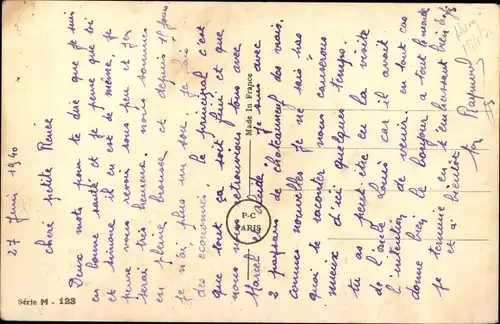 27 Juin 1940
chère petite Renée
Deux mots pour te dire que je suis
en bonne santé et je pense que toi
et Simone il en est de même, je
pense vous revoir sous peu et j'en
serai très heureux. nous sommes
en pleine brousse et depuis 15 jours
je n'ai plus un sou. j'ai
des economies. le principal c'est
que tout ça soit fini et que
nous nous retrouvions tous avec
Marcel et je suis avec
2 paysans de chateauneuf des vrais.
comme nouvelles je ne sais pas
quoi te raconter nous causerons
mieux d'ici quelques temps.
tu as peut être eu la visite
de l'oncle Louis car il avait
l'intention de venir. en tout cas
donne bien le bonjour a tout le monde
je termine en t'embrassant bien fort
et à bientôt
Raymond
Made In France
P-C
PARIS
Série M - 123